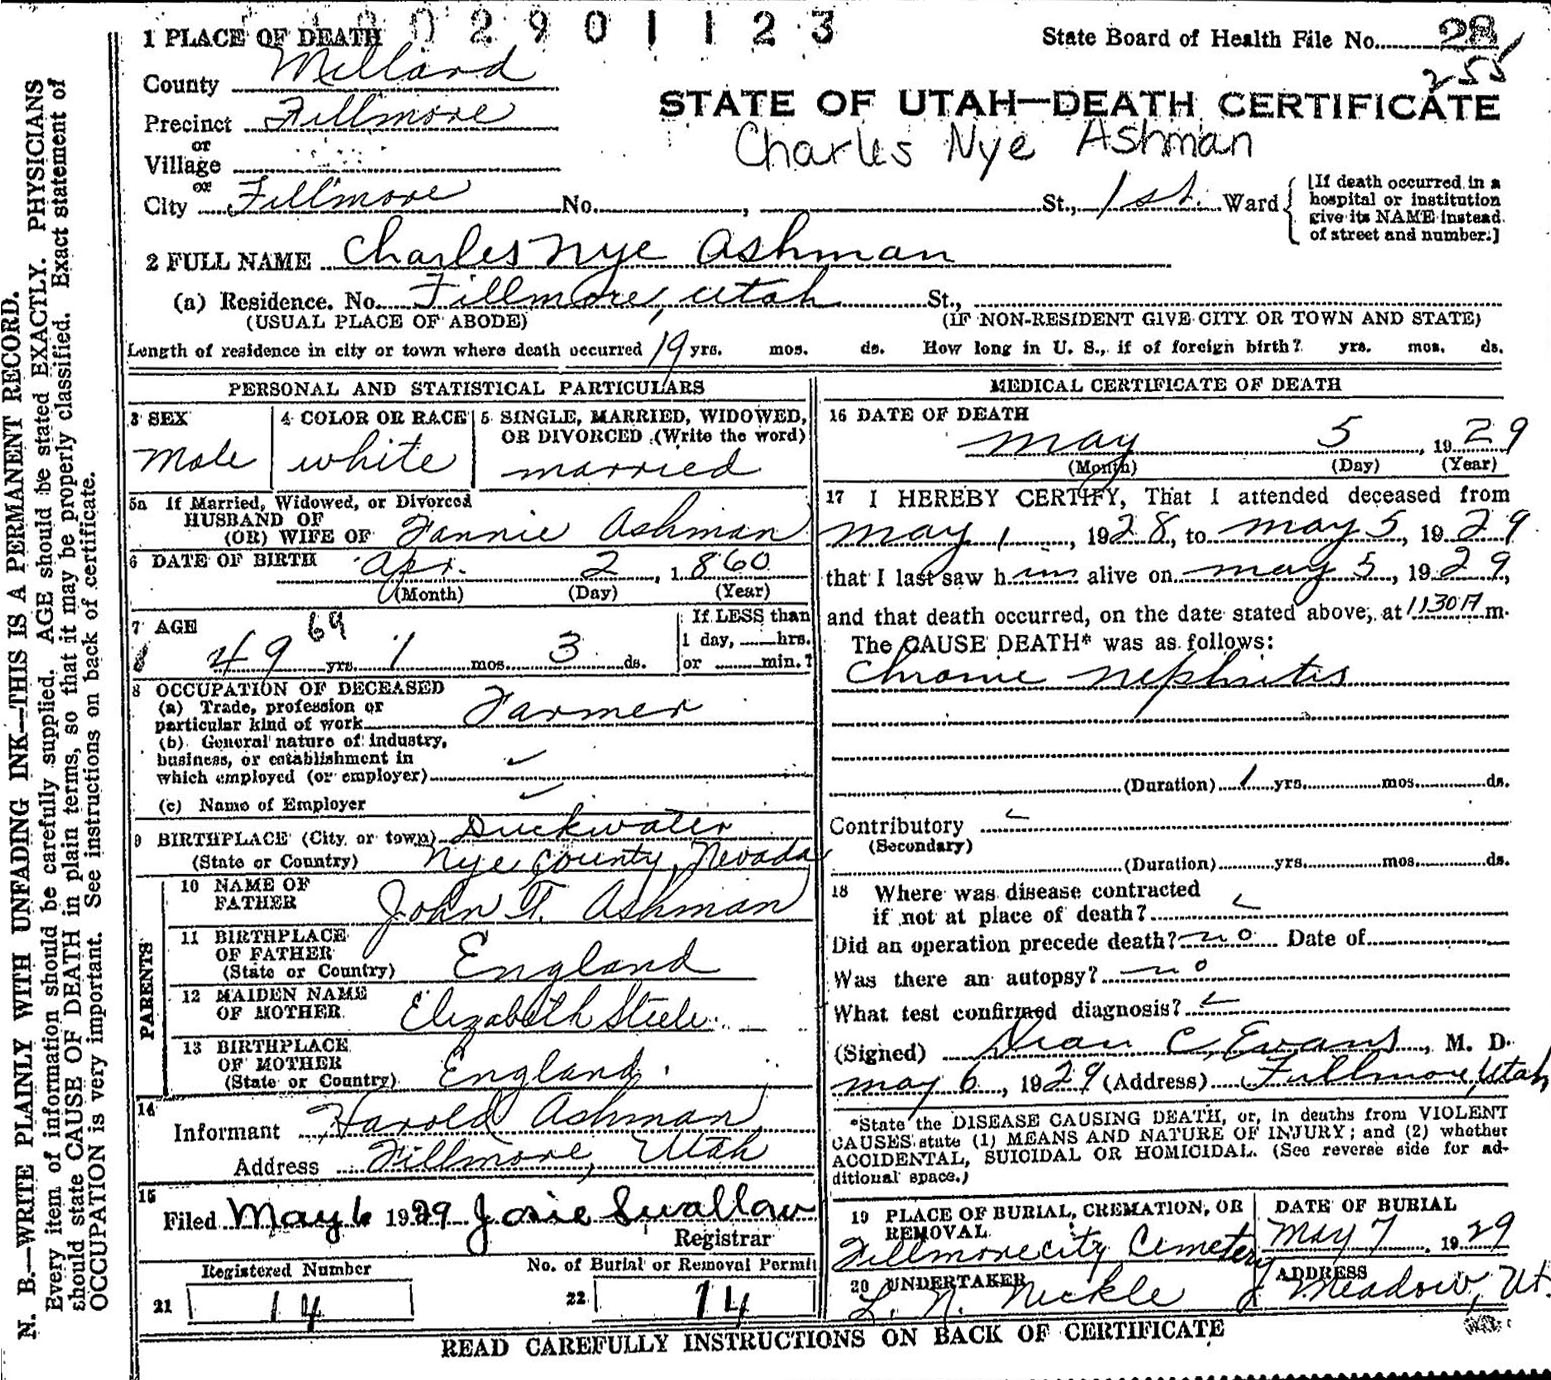 802901123
State Board of Health File No. 28
255
1 PLACE OF DEATH
County Millard
Precinct Fillmore
or
Village
or
City Fillmore No. , St., 1st. Ward
[If death occurred in a
hospital or institution
give its NAME instead
of street and number.]
STATE OF UTAH—DEATH CERTIFICATE
Charles Nye Ashman
2 FULL NAME Charles Nye Ashman
(a) Residence. No. Fillmore, Utah St.,
(USUAL PLACE OF ABODE) (IF NON-RESIDENT GIVE CITY OR TOWN AND STATE)
Length of residence in city or town where death occurred 19 yrs. mos. ds. How long in U. S., if of foreign birth? yrs. mos. ds.
PERSONAL AND STATISTICAL PARTICULARS
3 SEX
Male
4 COLOR OR RACE
white
5 SINGLE, MARRIED, WIDOWED,
OR DIVORCED (Write the word)
married
5a If Married, Widowed, or Divorced
HUSBAND OF
(OR) WIFE OF Fannie Ashman
6 DATE OF BIRTH Apr. 2, 1860
(Month) (Day) (Year)
7 AGE 69
49 yrs. 1 mos. 3 ds.
If LESS than
1 day, hrs.
or min.?
8 OCCUPATION OF DECEASED
(a) Trade, profession or
particular kind of work Farmer
(b) General nature of industry,
business, or establishment in
which employed (or employer)
(c) Name of Employer
9 BIRTHPLACE (City or town) Duckwater
(State or Country) Nye County, Nevada
PARENTS
10 NAME OF
FATHER John T. Ashman
11 BIRTHPLACE
OF FATHER
(State or Country) England
12 MAIDEN NAME
OF MOTHER Elizabeth Steele
13 BIRTHPLACE
OF MOTHER
(State or Country) England.
14
Informant Harold Ashman
Address Fillmore, Utah
15
Filed May 6 1929 Josie Swallow
Registrar
Registered Number
21 14
No. of Burial or Removal Permit
22 14
MEDICAL CERTIFICATE OF DEATH
16 DATE OF DEATH
May 5, 1929
(Month) (Day) (Year)
17 I HEREBY CERTIFY, That I attended deceased from
May 1, 1928, to May 5, 1929
that I last saw him alive on May 5, 1929,
and that death occurred, on the date stated above, at 1130A m.
The CAUSE DEATH* was as follows:
Chronic nephritis
(Duration) 1 yrs. mos. ds.
Contributory
(Secondary)
(Duration) yrs. mos. ds.
18 Where was disease contracted
if not at place of death?
Did an operation precede death? no Date of
Was there an autopsy? no
What test confirmed diagnosis?
(Signed) Dean C. Evans, M. D.
May 6, 1929 (Address) Fillmore, Utah
*State the DISEASE CAUSING DEATH, or, in deaths from VIOLENT
CAUSES state (1) MEANS AND NATURE OF INJURY; and (2) whether
ACCIDENTAL, SUICIDAL OR HOMICIDAL. (See reverse side for ad-
ditional space.)
19 PLACE OF BURIAL, CREMATION, OR
REMOVAL
Fillmore City Cemetery
DATE OF BURIAL
May 7 1929
20 UNDERTAKER
L. N. Nickle
ADDRESS
Meadow, Ut.
READ CAREFULLY INSTRUCTIONS ON BACK OF CERTIFICATE
N. B.—WRITE PLAINLY WITH UNFADING INK—THIS IS A PERMANENT RECORD.
Every item of information should be carefully supplied. AGE should be stated EXACTLY. PHYSICIANS
should state CAUSE OF DEATH in plain terms, so that it may be properly classified. Exact statement of
OCCUPATION is very important. See instructions on back of certificate.